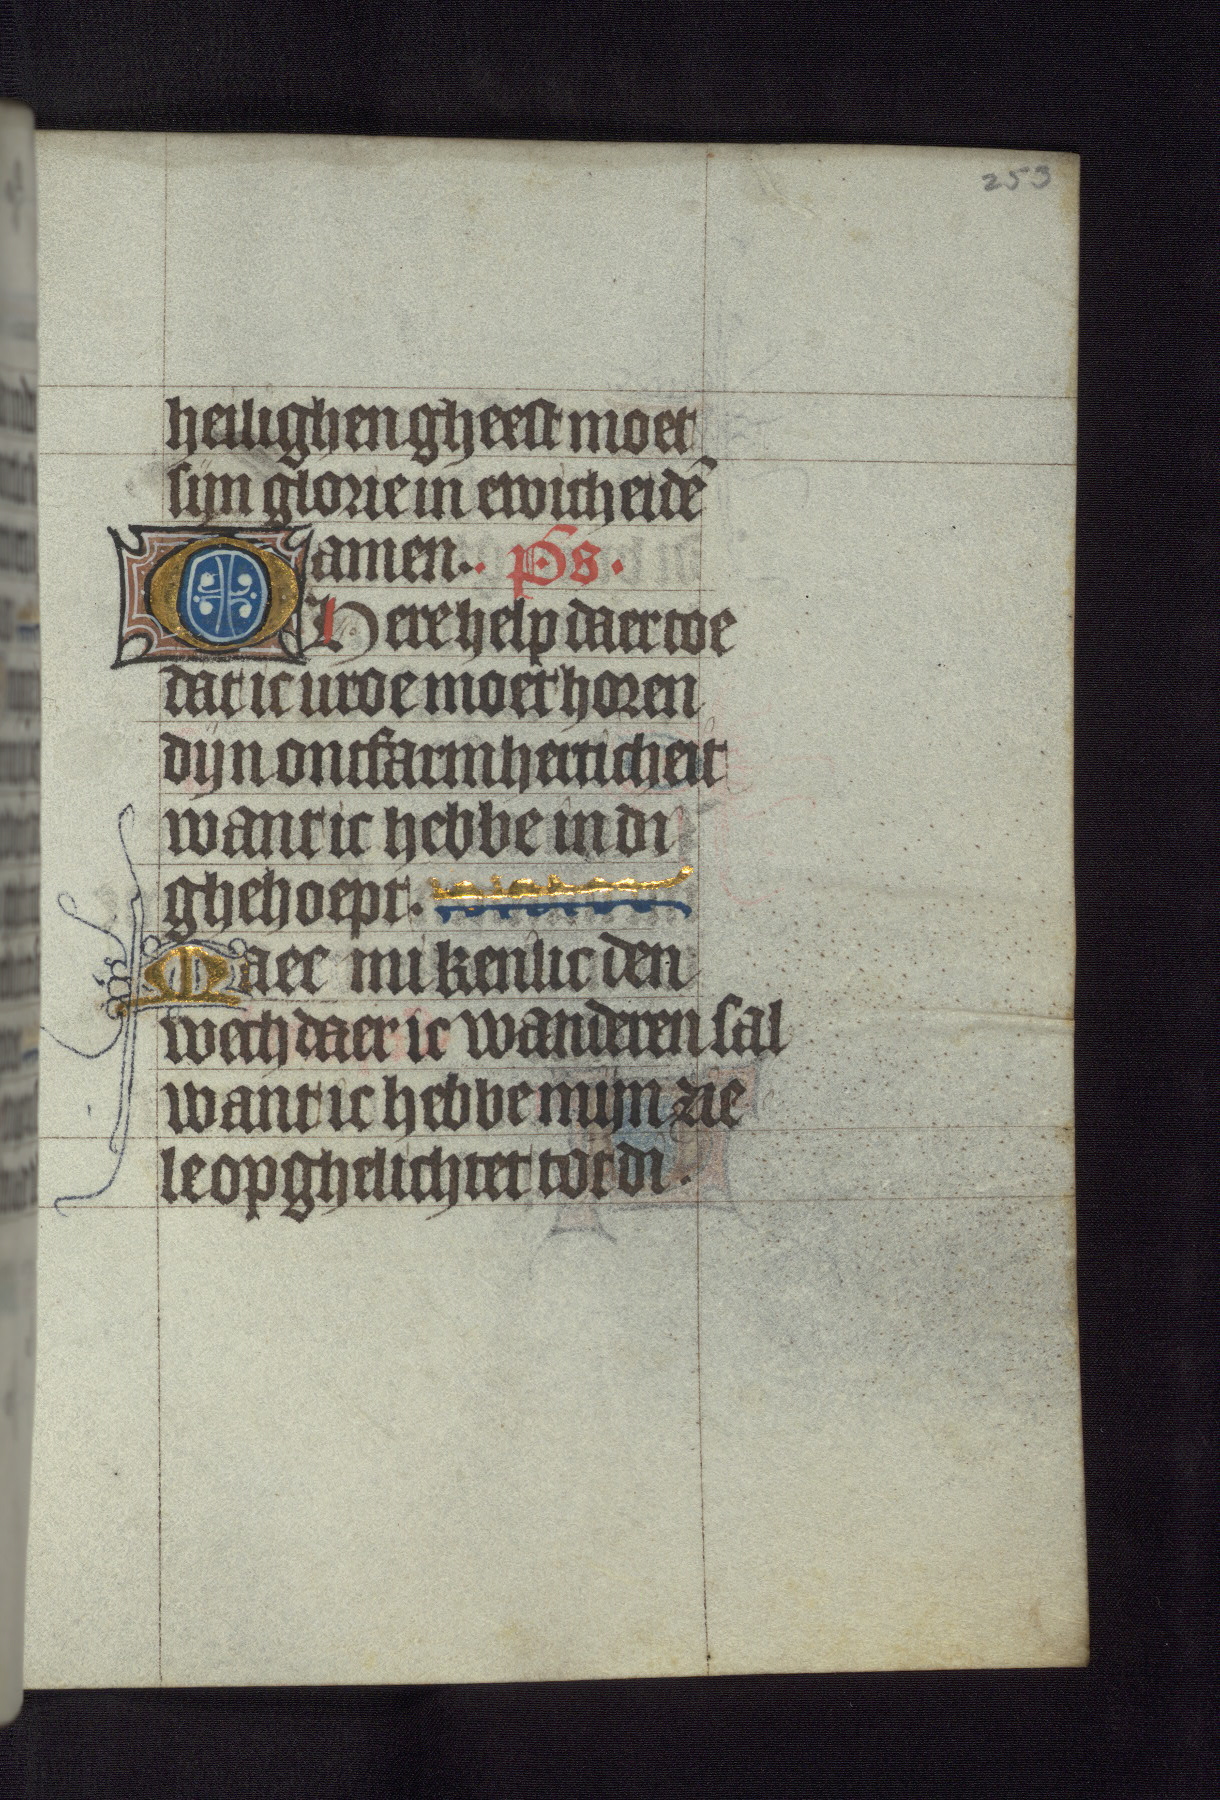 253
heilighen gheest moet
sijn glorie in ewicheidē
amen. ps.
O Here help daer toe
dat ic uroe moet horen
dijn ontfarmherticheit
want ic hebbe in di
ghehoept.
Maec mi kenlic den
wech daer ic wanderen sal
want ic hebbe mijn zie
le op ghelichtet tot di.